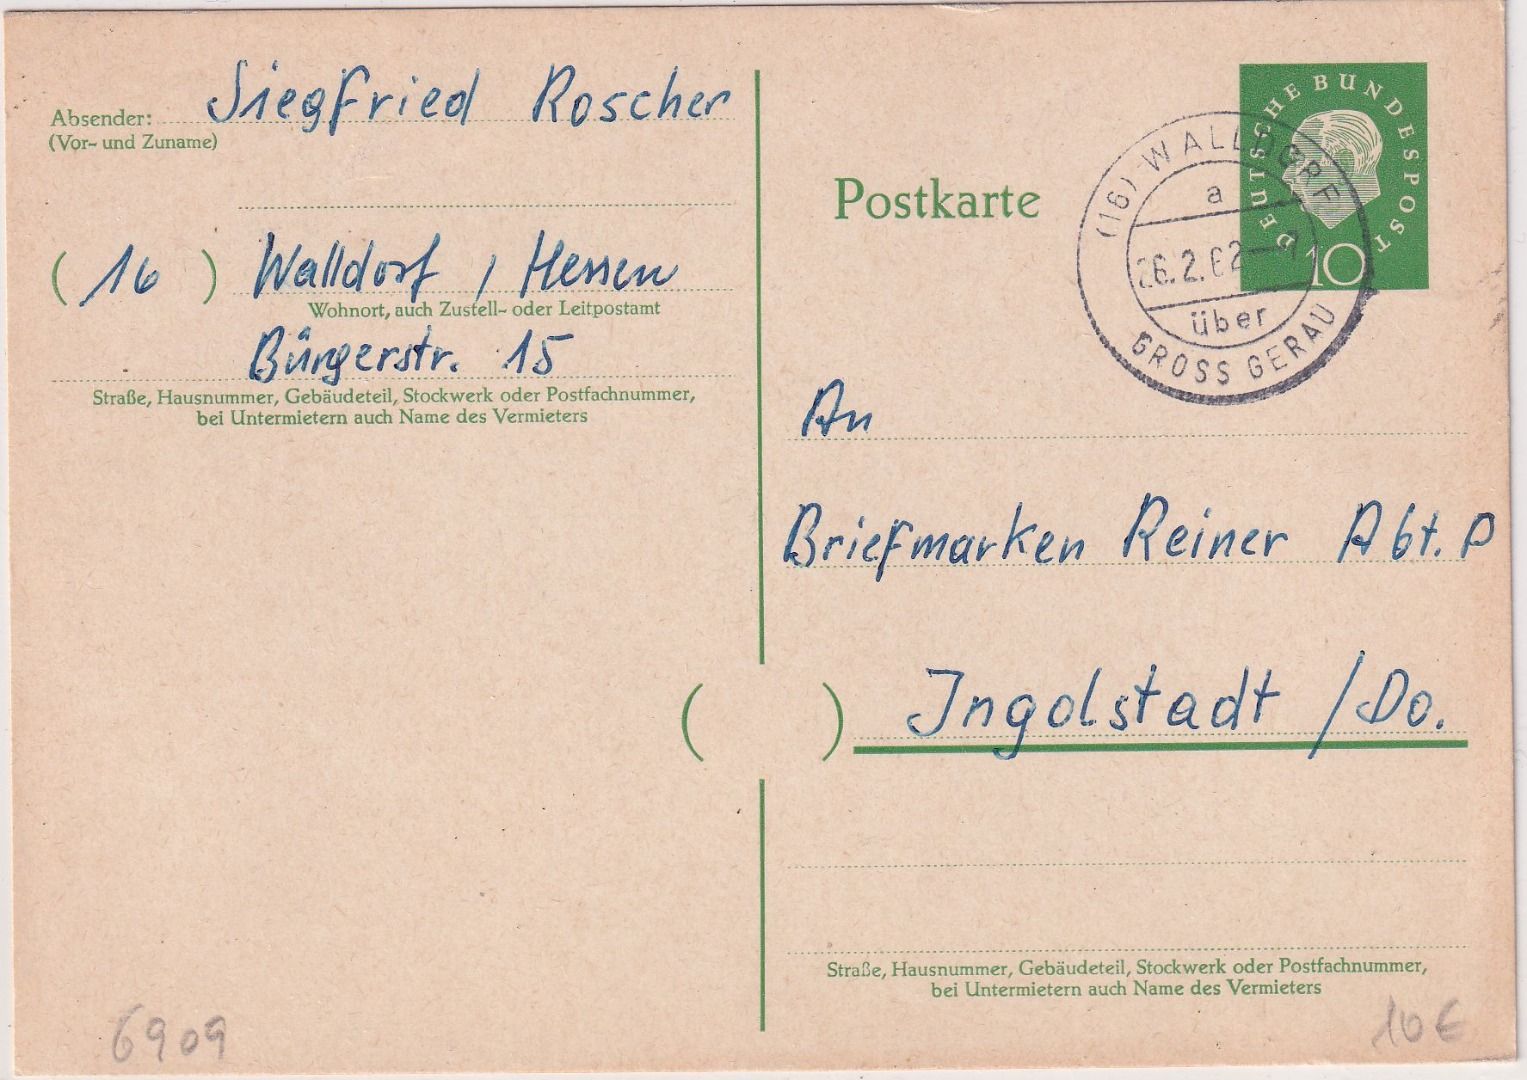 Absender: Siegfried Roscher
(Vor- und Zuname)
( 16 ) Walldorf, Hessen
Wohnort, auch Zustell- oder Leitpostamt
Bürgerstr. 15
Straße, Hausnummer, Gebäudeteil, Stockwerk oder Postfachnummer,
bei Untermietern auch Name des Vermieters
6909
Postkarte
DEUTSCHE BUNDESPOST
10
(16) WALLDORF
a
26.2.62
über
GROSS GERAU
An
Briefmarken Reiner Abt. P
( ) Ingolstadt /Do.
Straße, Hausnummer, Gebäudeteil, Stockwerk oder Postfachnummer,
bei Untermietern auch Name des Vermieters
10€